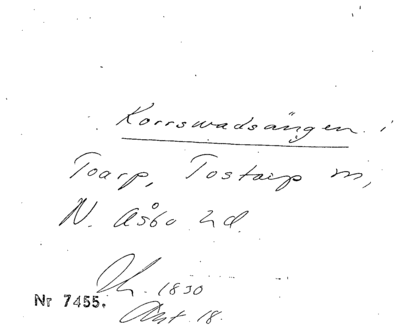 Korrswadsängen i
Toarp, Tostarp m,
N. Åsbo hd.
1830
Nr 7455.
Akt. 18.